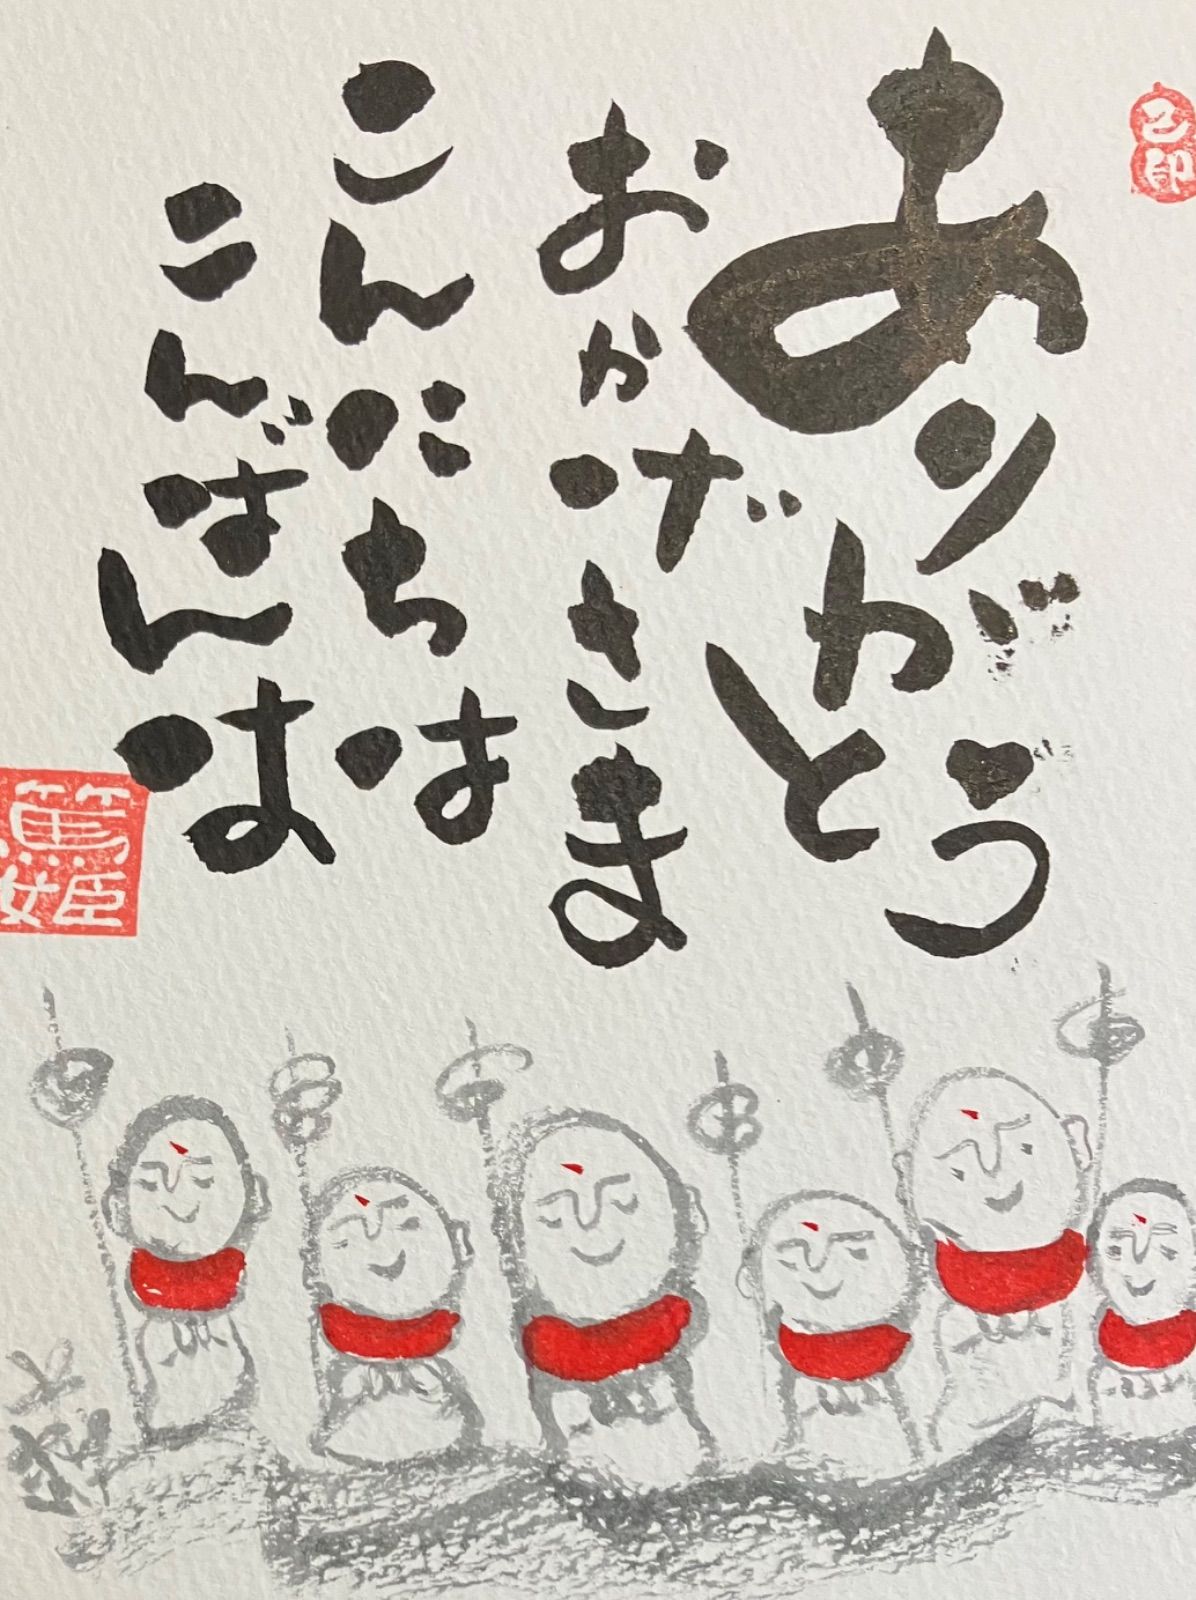 ありがとう
おかげさま
こんにちは
こんばんは
篤姫